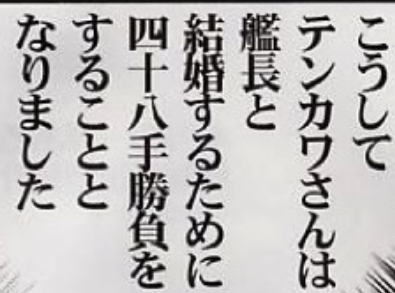 こうして
テンカワさんは
艦長と
結婚するために
四十八手勝負を
することと
なりました